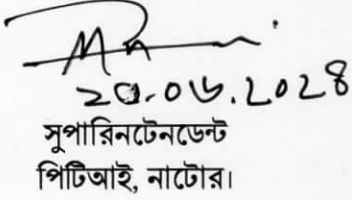 ২০.০৬.২০২৪
সুপারিনটেনডেন্ট
পিটিআই, নাটোর।